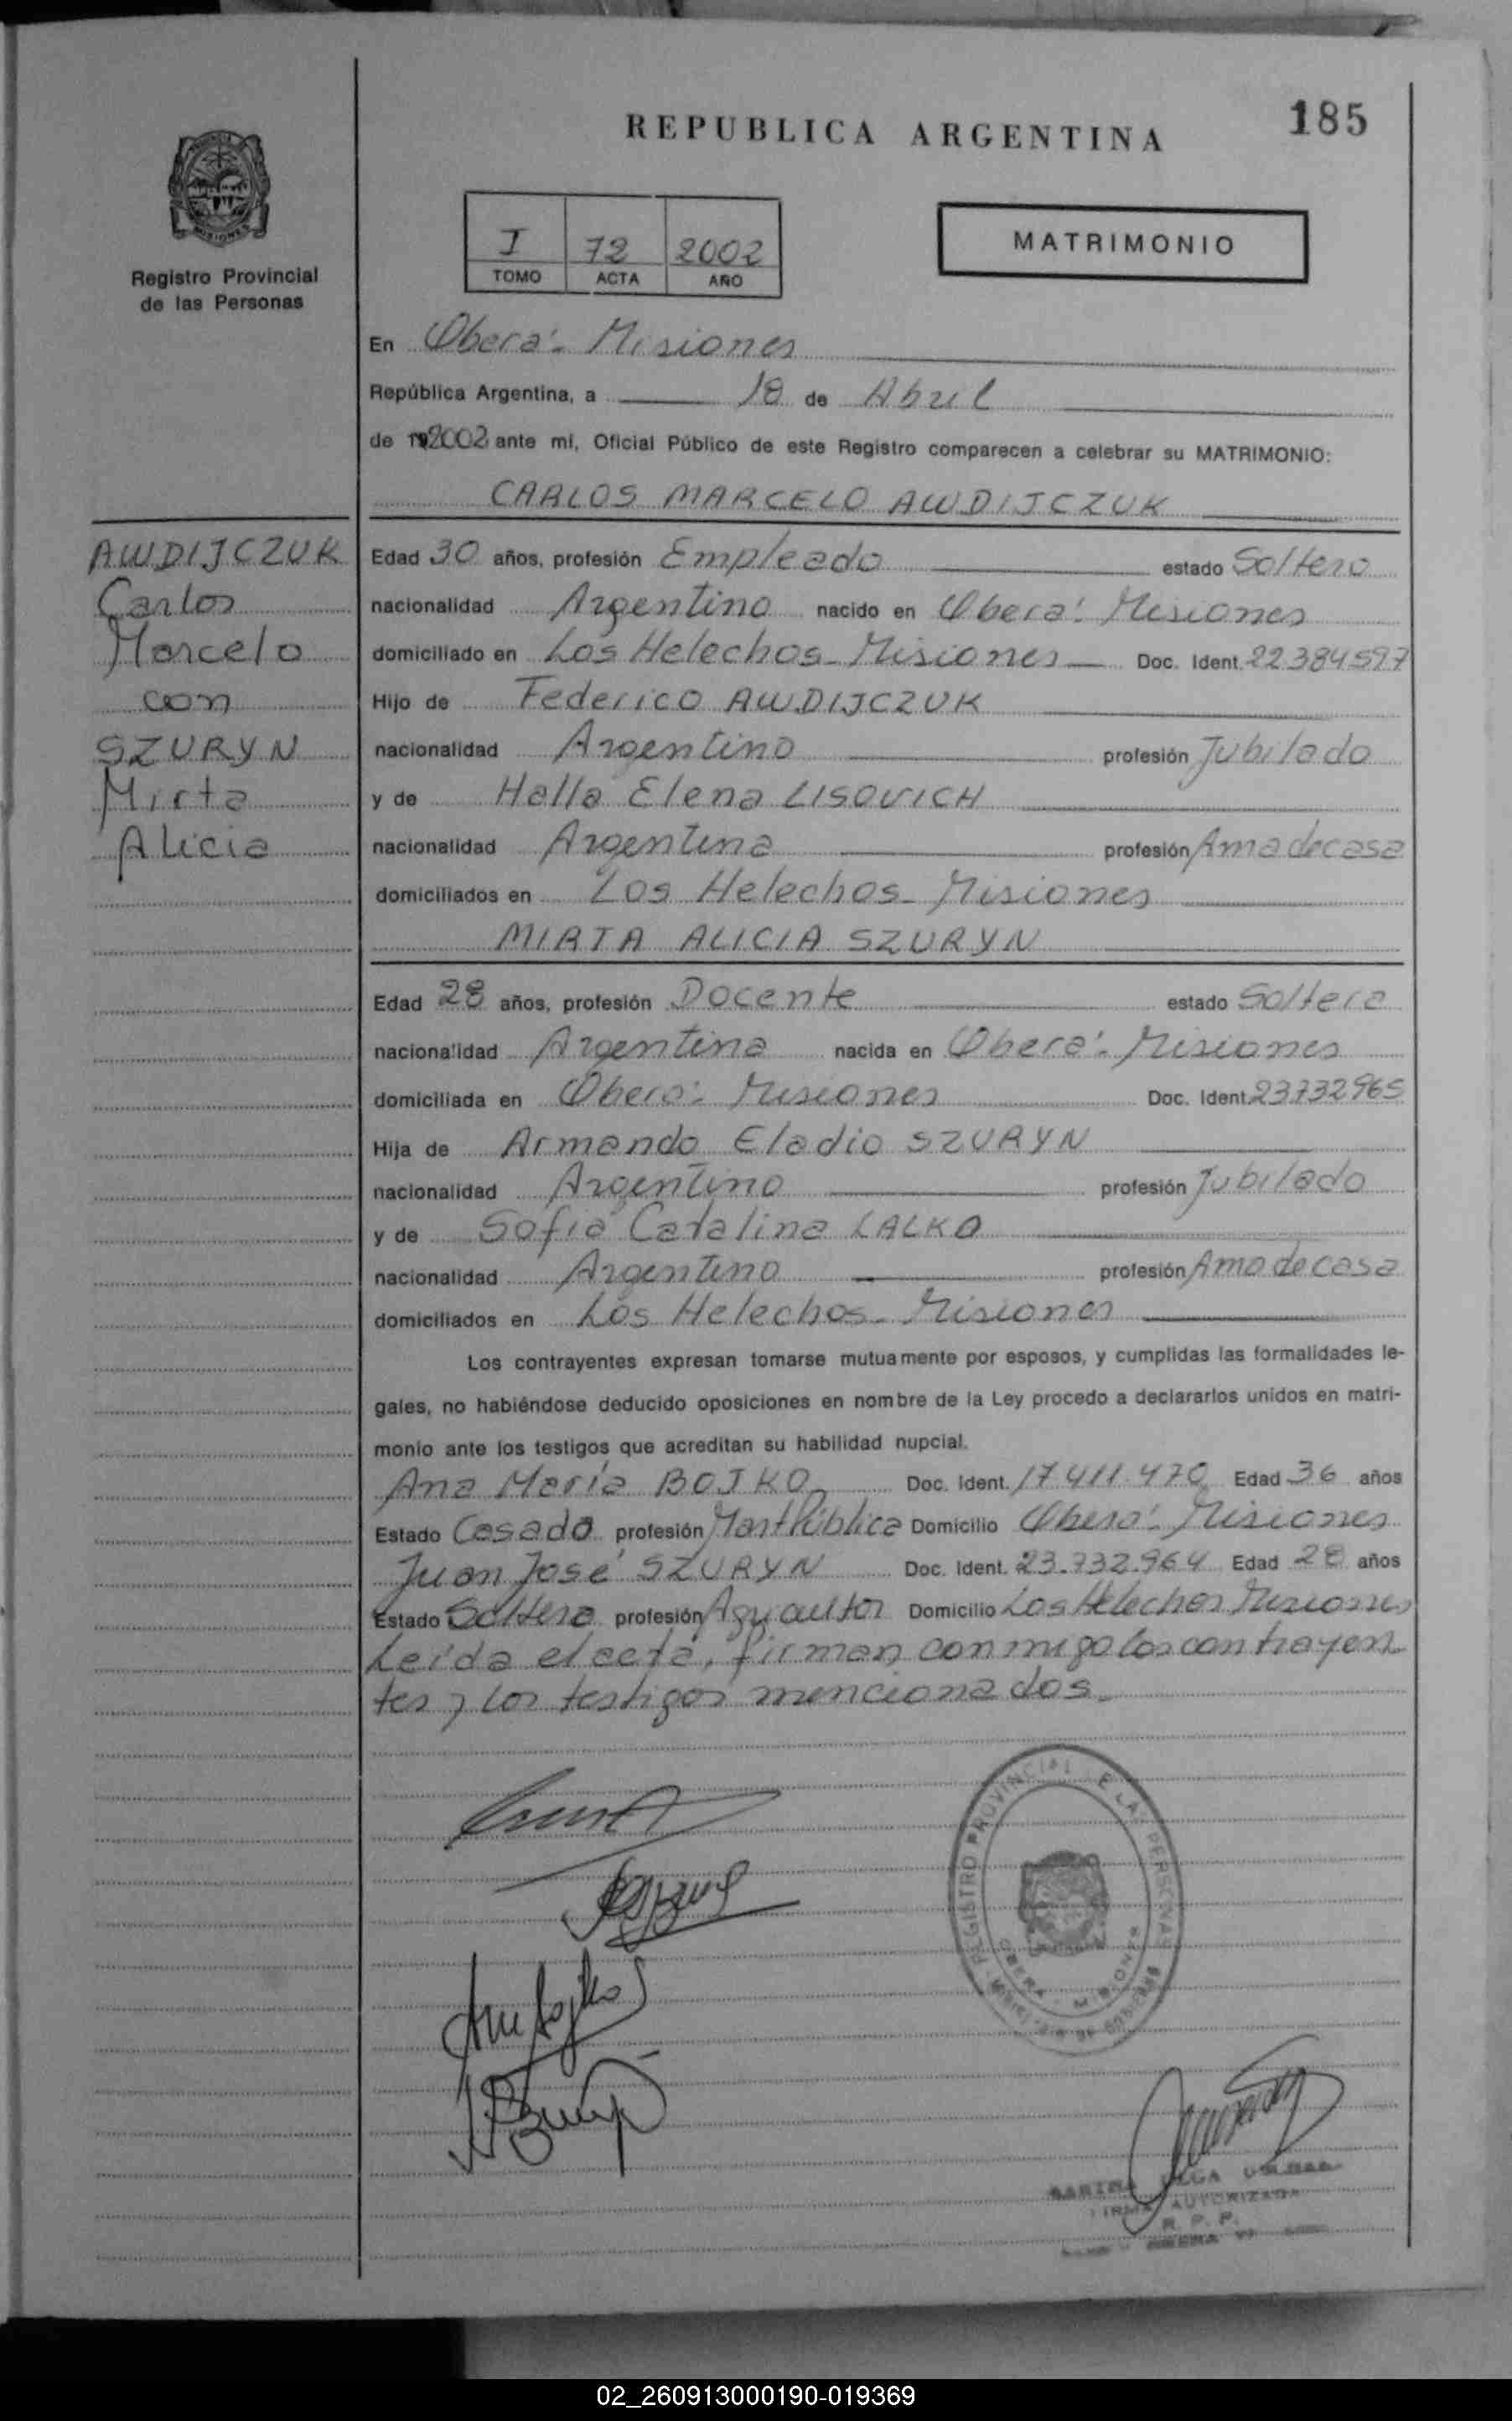 REPUBLICA ARGENTINA
185
MISIONES
Registro Provincial
de las Personas
I 72 2002
TOMO ACTA AÑO
MATRIMONIO
En Oberá - Misiones
República Argentina, a 18 de Abril
de 19 2002 ante mí, Oficial Público de este Registro comparecen a celebrar su MATRIMONIO:
CARLOS MARCELO AWDIJCZUK
AWDIJCZUK
Carlos
Marcelo
con
SZURYN
Mirta
Alicia
Edad 30 años, profesión Empleado estado Soltero
nacionalidad Argentino nacido en Oberá - Misiones
domiciliado en Los Helechos - Misiones Doc. Ident. 22384597
Hijo de Federico AWDIJCZUK
nacionalidad Argentino profesión Jubilado
y de Halla Elena LISOVICH
nacionalidad Argentina profesión Ama de casa
domiciliados en Los Helechos - Misiones
MIRTA ALICIA SZURYN
Edad 28 años, profesión Docente estado Soltera
nacionalidad Argentina nacida en Oberá - Misiones
domiciliada en Oberá - Misiones Doc. Ident. 23732965
Hija de Armando Eladio SZURYN
nacionalidad Argentino profesión Jubilado
y de Sofia Catalina LALKO
nacionalidad Argentino profesión Ama de casa
domiciliados en Los Helechos - Misiones
Los contrayentes expresan tomarse mutuamente por esposos, y cumplidas las formalidades le-
gales, no habiéndose deducido oposiciones en nombre de la Ley procedo a declararlos unidos en matri-
monio ante los testigos que acreditan su habilidad nupcial.
Ana María BOJKO Doc. Ident. 17.411.470 Edad 36 años
Estado Casada profesión Mart Pública Domicilio Oberá - Misiones
Juan José SZURYN Doc. Ident. 23.732.964 Edad 28 años
Estado Soltero profesión Agricultor Domicilio Los Helechos Misiones
Leída el acta, firman conmigo los contrayen
tes y los testigos mencionados.
REGISTRO PROVINCIAL DE LAS PERSONAS
OBERA - MISIONES
OLGA
FIRMA AUTORIZADA
R. P. P.
OBERA
02_260913000190-019369